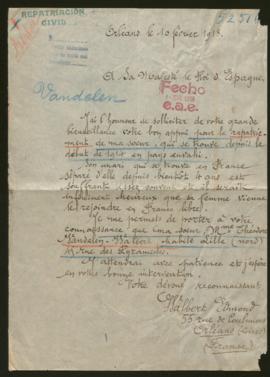 REPATRIACION
CIVIL
Orléans le 10 février 1918.
A Sa Majesté le Roi d'Espagne,
Fecho
e.a.e.
Vandelen
J'ai l'honneur de solliciter de votre grande
bienveillance votre bon appui pour le rapatrie-
ment de ma soeur, qui se trouve depuis le
début de 1914 en pays envahi.
Son mari qui se trouve en France
séparé d'elle depuis bientôt 4 ans est
souffrant assez souvent et il serait
infiniment heureux que sa femme vienne
le rejoindre en France libre.
Je me permets de porter à votre
connaissance que ma soeur Mme Théodore
Vandelen habite Lille (nord)
rue des Pyramides.
J'attendrai avec patience et j'espère
en votre bonne intervention.
Votre dévoué reconnaissant
55 rue de
Orléans
(France)